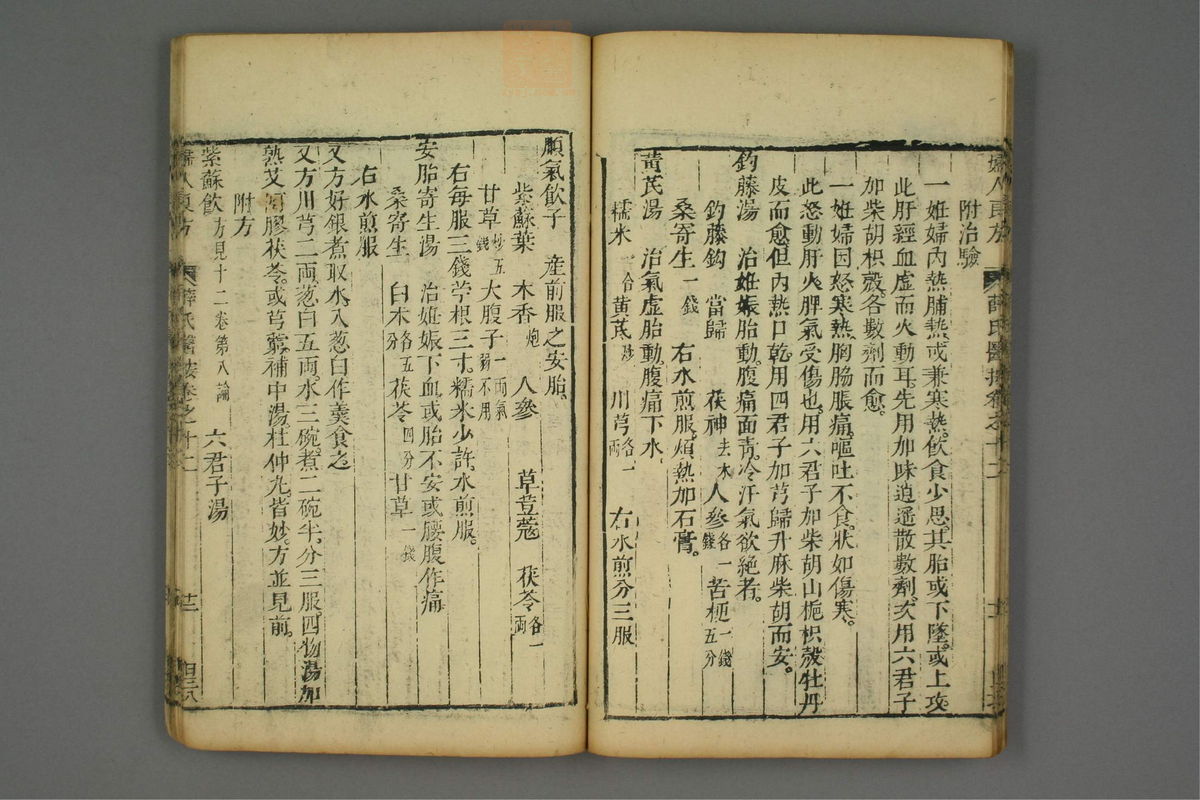 附治驗
一妊婦內熱脯熱或兼寒熱飲食少思其胎或下墜或上攻
此肝經血虛而火動耳先用加味逍遙散數劑次用六君子
加柴胡枳殼各數劑而愈
一妊婦因怒寒熱胸脇脹痛嘔吐不食狀如傷寒
此怒動肝火脾氣受傷也用六君子加柴胡山梔枳殼牡丹
皮而愈但內熱口乾用四君子加芎歸升麻柴胡而安
鈎藤湯 治妊娠胎動腹痛面青冷汗氣欲絕者
鈎藤鈎 當歸 茯神去木 人參各一錢 苦梗一錢五分
桑寄生一錢 右水煎服煩熱加石膏
黃芪湯 治氣虛胎動腹痛下水
糯米一合 黃芪炒 川芎各一兩 右水煎分三服
順氣飲子 產前服之安胎
紫蘇葉 木香炮 人參 草荳蔻 茯苓各一兩
甘草炒五錢 大腹子一兩氣弱不用
右每服三錢苧根三寸糯米少許水煎服
安胎寄生湯 治妊娠下血或胎不安或腰腹作痛
桑寄生 白朮各五分 茯苓四分 甘草一錢
右水煎服
又方好銀煮取水入葱白作羹食之
又方川芎二兩葱白五兩水三碗煮二碗半分三服四物湯加
熟艾阿膠茯苓或芎藭補中湯杜仲丸皆妙方並見前
附方
紫蘇飲方見十二卷第八論 六君子湯
婦人良方 薛氏醫按卷之十二